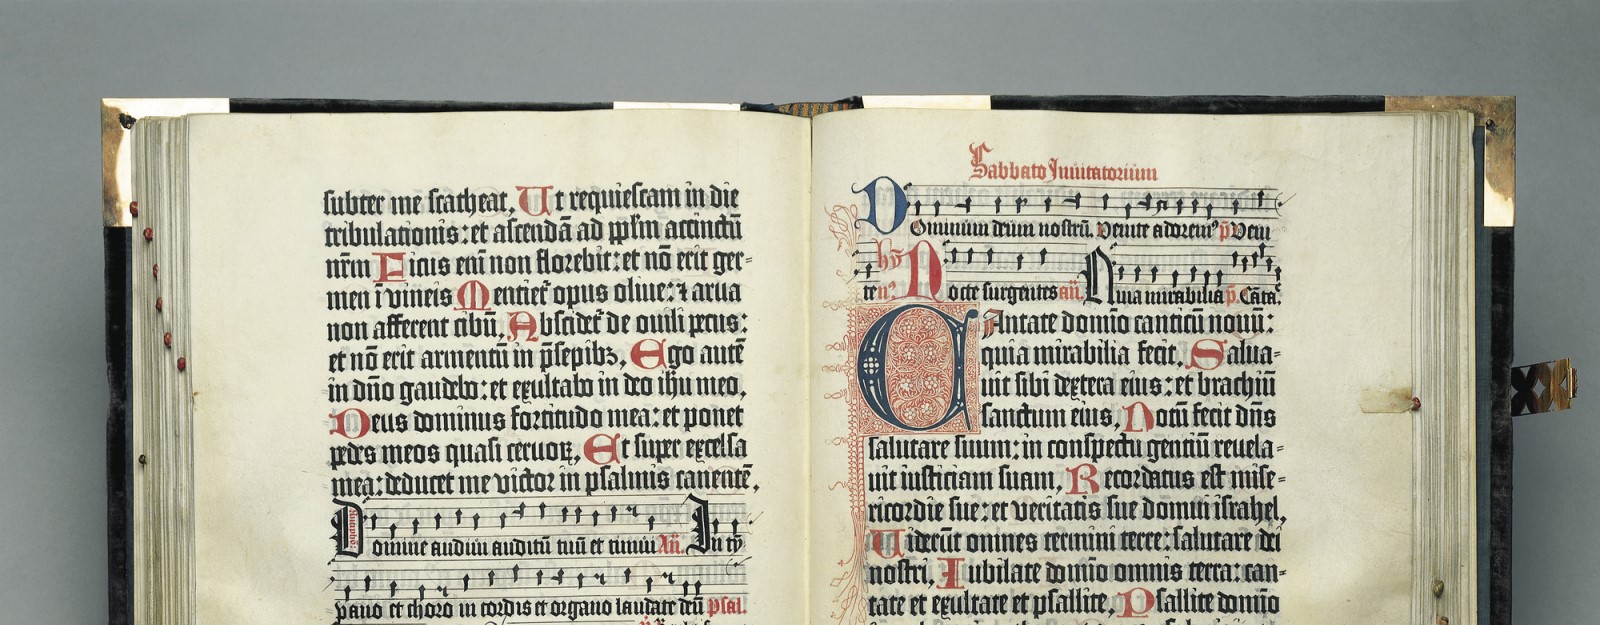 subter me scatheat. Ut requiescam in die
tribulationis: et ascendā ad pplm accinctū
nrm Ficus enī non florebit: et nō erit ger=
men ī vineis Mentiet᷑ opus olive: ⁊ arua
non afferent cibū, Abscidet᷑ de ouili pecus:
et nō erit armentū in p̄sepibꝫ, Ego autē
in dn̄o gaudebo: et exultabo in deo ih̄u meo,
Deus dominus fortitudo mea: et ponet
pedes meos quasi ceruoꝝ, Et super excelsa
mea: deducet me victor in psalmis canentē,
Domine audiui auditū tuū et timui Añ. In ty
pano et choro in cordis et organo laudate deū psal.
Sabbato Inuitatorium
Dominum deum nostrū. Venite adorem⁹ p̄ Veni
te n̄? Nocte surgentes añ. Quia mirabilia p̄. Cāta.
CAntate domīo canticū nouū:
quia mirabilia fecit, Salua=
uit sibi dextera eius: et brachiū
sanctum eius, Notū fecit dn̄s
salutare suum: in conspectu gentiū reuela=
uit iusticiam suam, Recordatus est mise=
ricordie sue: et veritatis sue domui israhel,
Uiderūt omnes termini terre: salutare dei
nostri, Iubilate domīo omnis terra: can=
tate et exultate et psallite, Psallite domīo